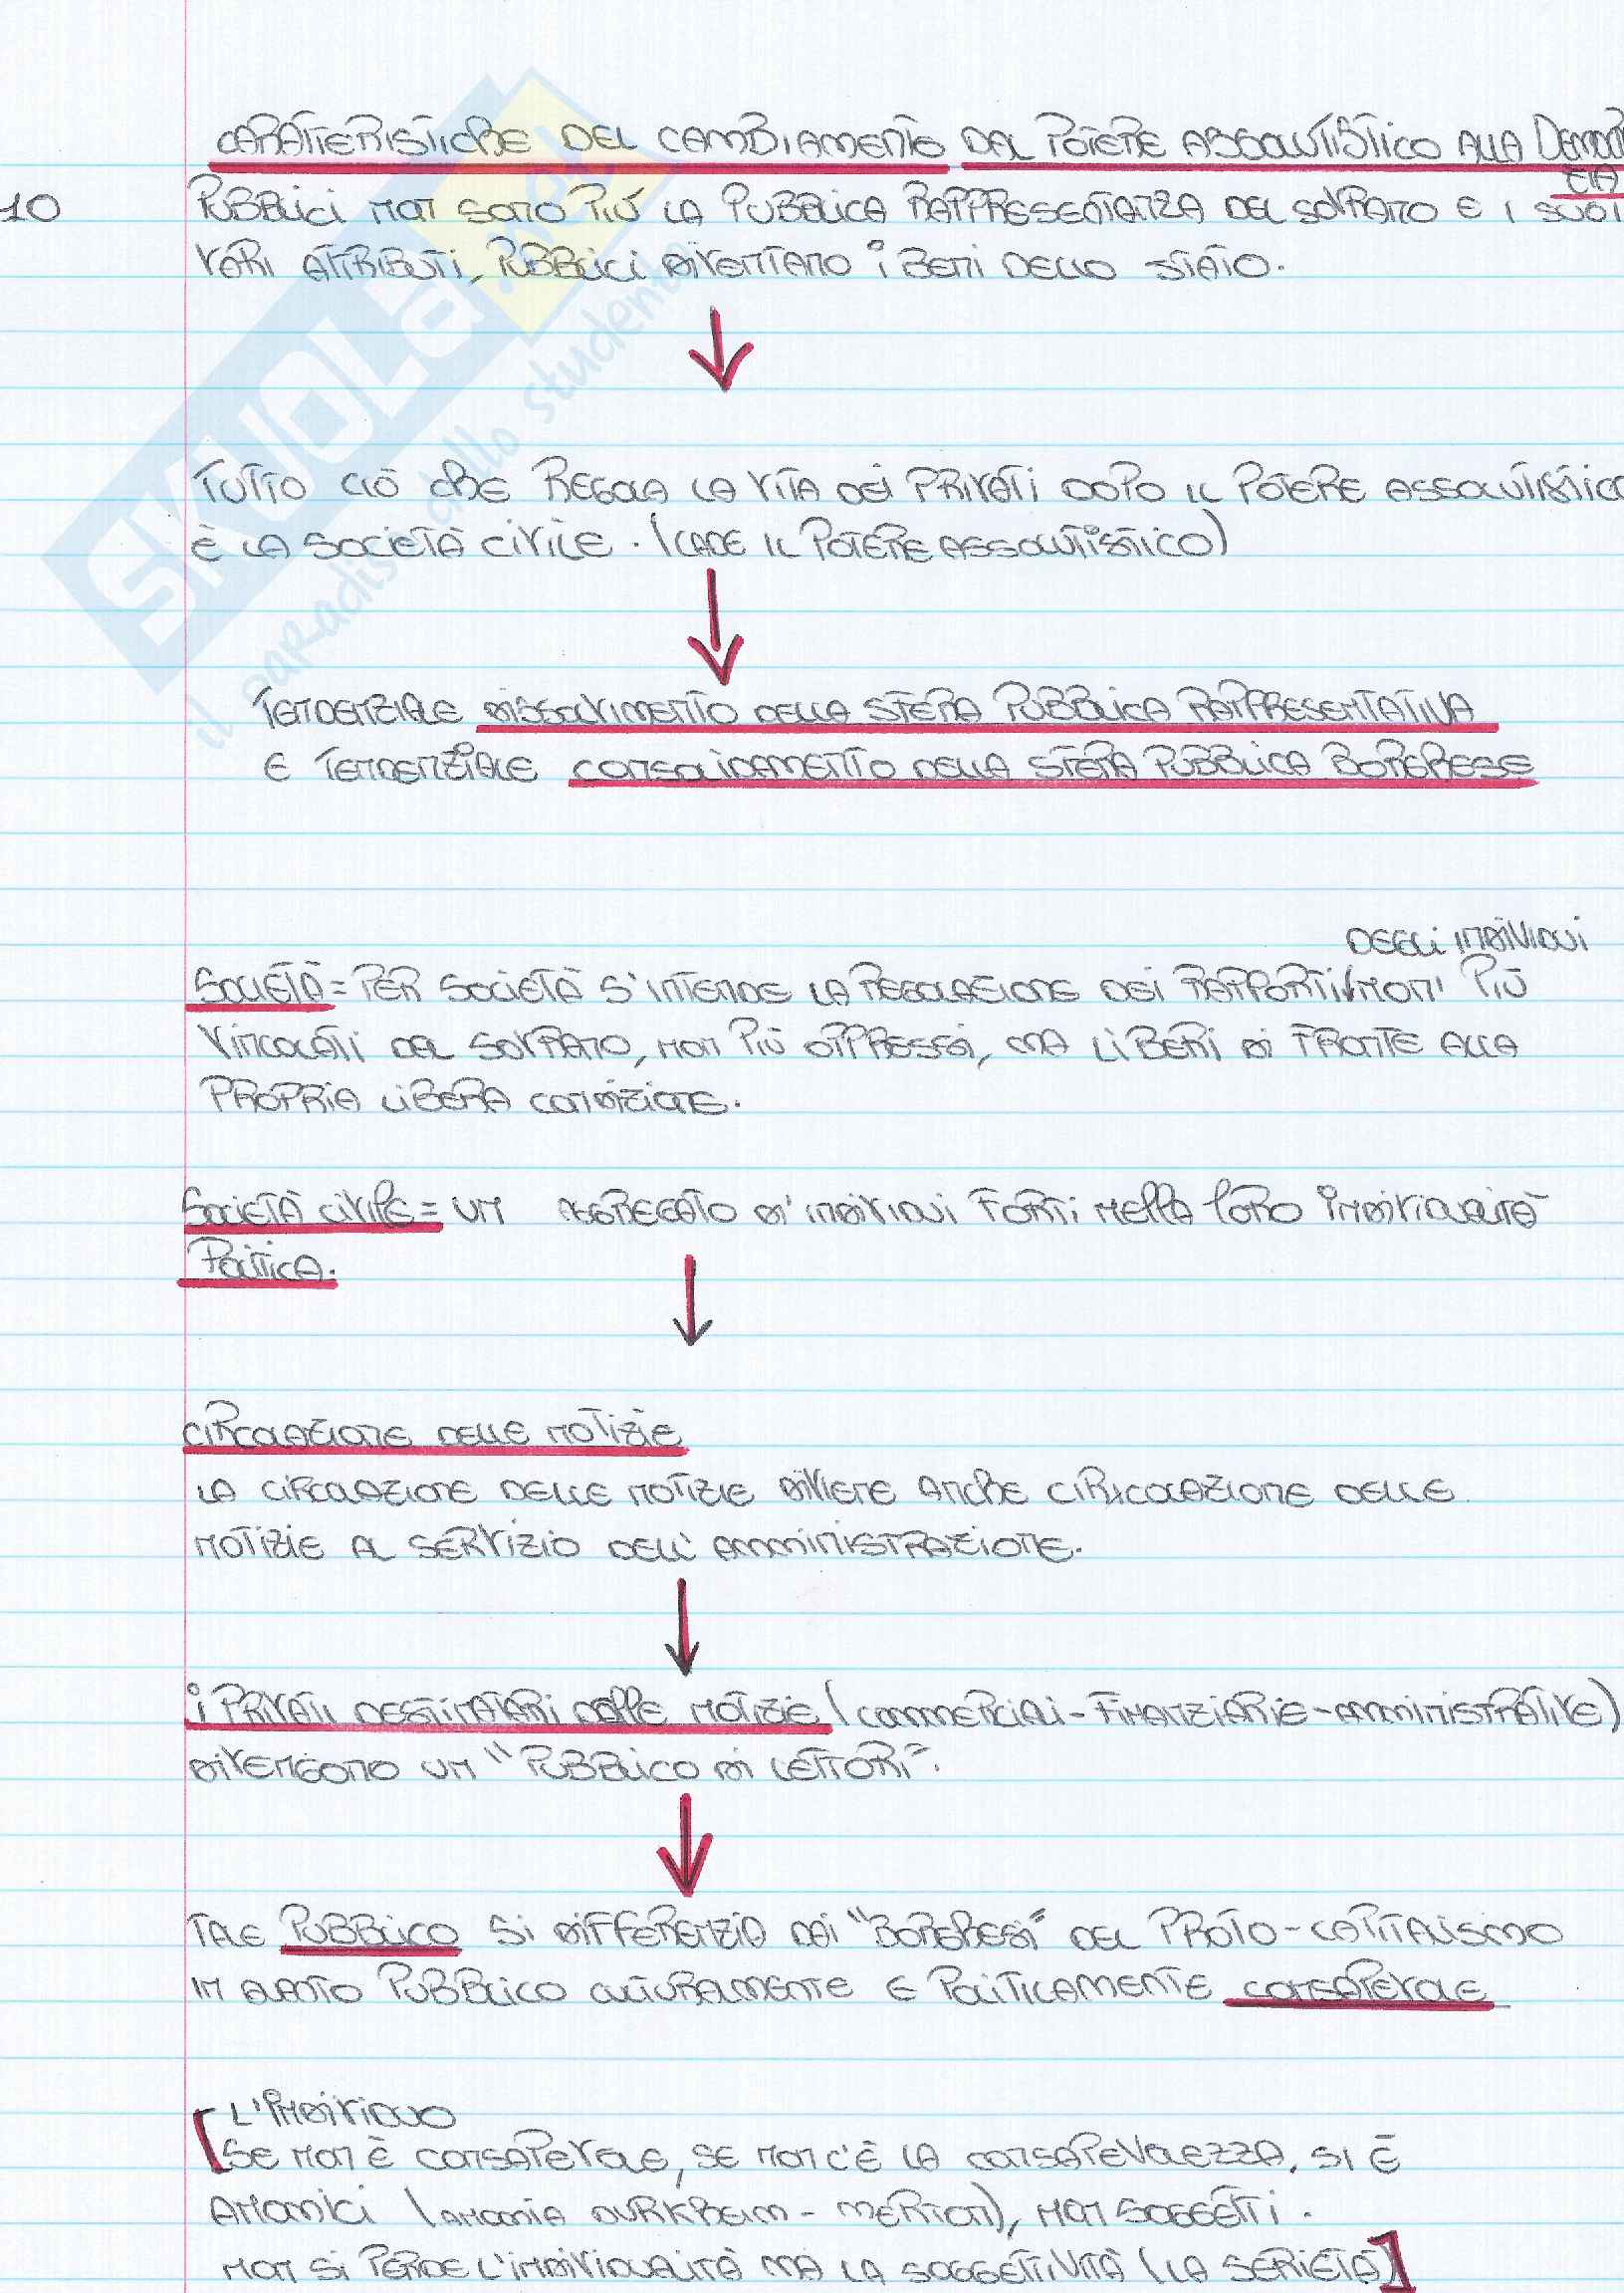 CARATTERISTICHE DEL CAMBIAMENTO DAL POTERE ASSOLUTISTICO ALLA DEMOCRA
ZIA
10
PUBBLICI NON SONO PIÙ LA PUBBLICA RAPPRESENTANZA DEL SOVRANO E I SUOI
VARI ATTRIBUTI, PUBBLICI DIVENTANO i BENI DELLO STATO.
TUTTO CIÒ CHE REGOLA LA VITA DEI PRIVATI DOPO IL POTERE ASSOLUTISTICO
È LA SOCIETÀ CIVILE. (CADE IL POTERE ASSOLUTISTICO)
TENDENZIALE DISSOLVIMENTO DELLA SFERA PUBBLICA RAPPRESENTATIVA
E TENDENZIALE CONSOLIDAMENTO DELLA SFERA PUBBLICA BORGHESE
DEGLI INDIVIDUI
SOCIETÀ = PER SOCIETÀ S'INTENDE LA REGOLAZIONE DEI RAPPORTI/NON PIÙ
VINCOLATI DAL SOVRANO, NON PIÙ OPPRESSI, MA LIBERI DI FRONTE ALLA
PROPRIA LIBERA CONDIZIONE.
SOCIETÀ CIVILE = UN AGGREGATO D'INDIVIDUI FORTI NELLA LORO INDIVIDUALITÀ
POLITICA.
CIRCOLAZIONE DELLE NOTIZIE
LA CIRCOLAZIONE DELLE NOTIZIE DIVIENE ANCHE CIRCOLAZIONE DELLE
NOTIZIE AL SERVIZIO DELL'AMMINISTRAZIONE.
i PRIVATI DESTINATARI DELLE NOTIZIE (COMMERCIALI-FINANZIARIE-AMMINISTRATIVE)
DIVENGONO UN "PUBBLICO DI LETTORI".
TALE PUBBLICO SI DIFFERENZIA DAI "BORGHESI" DEL PROTO-CAPITALISMO
IN QUANTO PUBBLICO CULTURALMENTE E POLITICAMENTE CONSAPEVOLE
[L'INDIVIDUO
SE NON È CONSAPEVOLE, SE NON C'È LA CONSAPEVOLEZZA, SI È
ANOMICI (ANOMIA DURKHEIM - MERTON), NON SOGGETTI.
NON SI PERDE L'INDIVIDUALITÀ MA LA SOGGETTIVITÀ (LA SERIETÀ)]
SKUOLA.NET
il paradiso dello studente